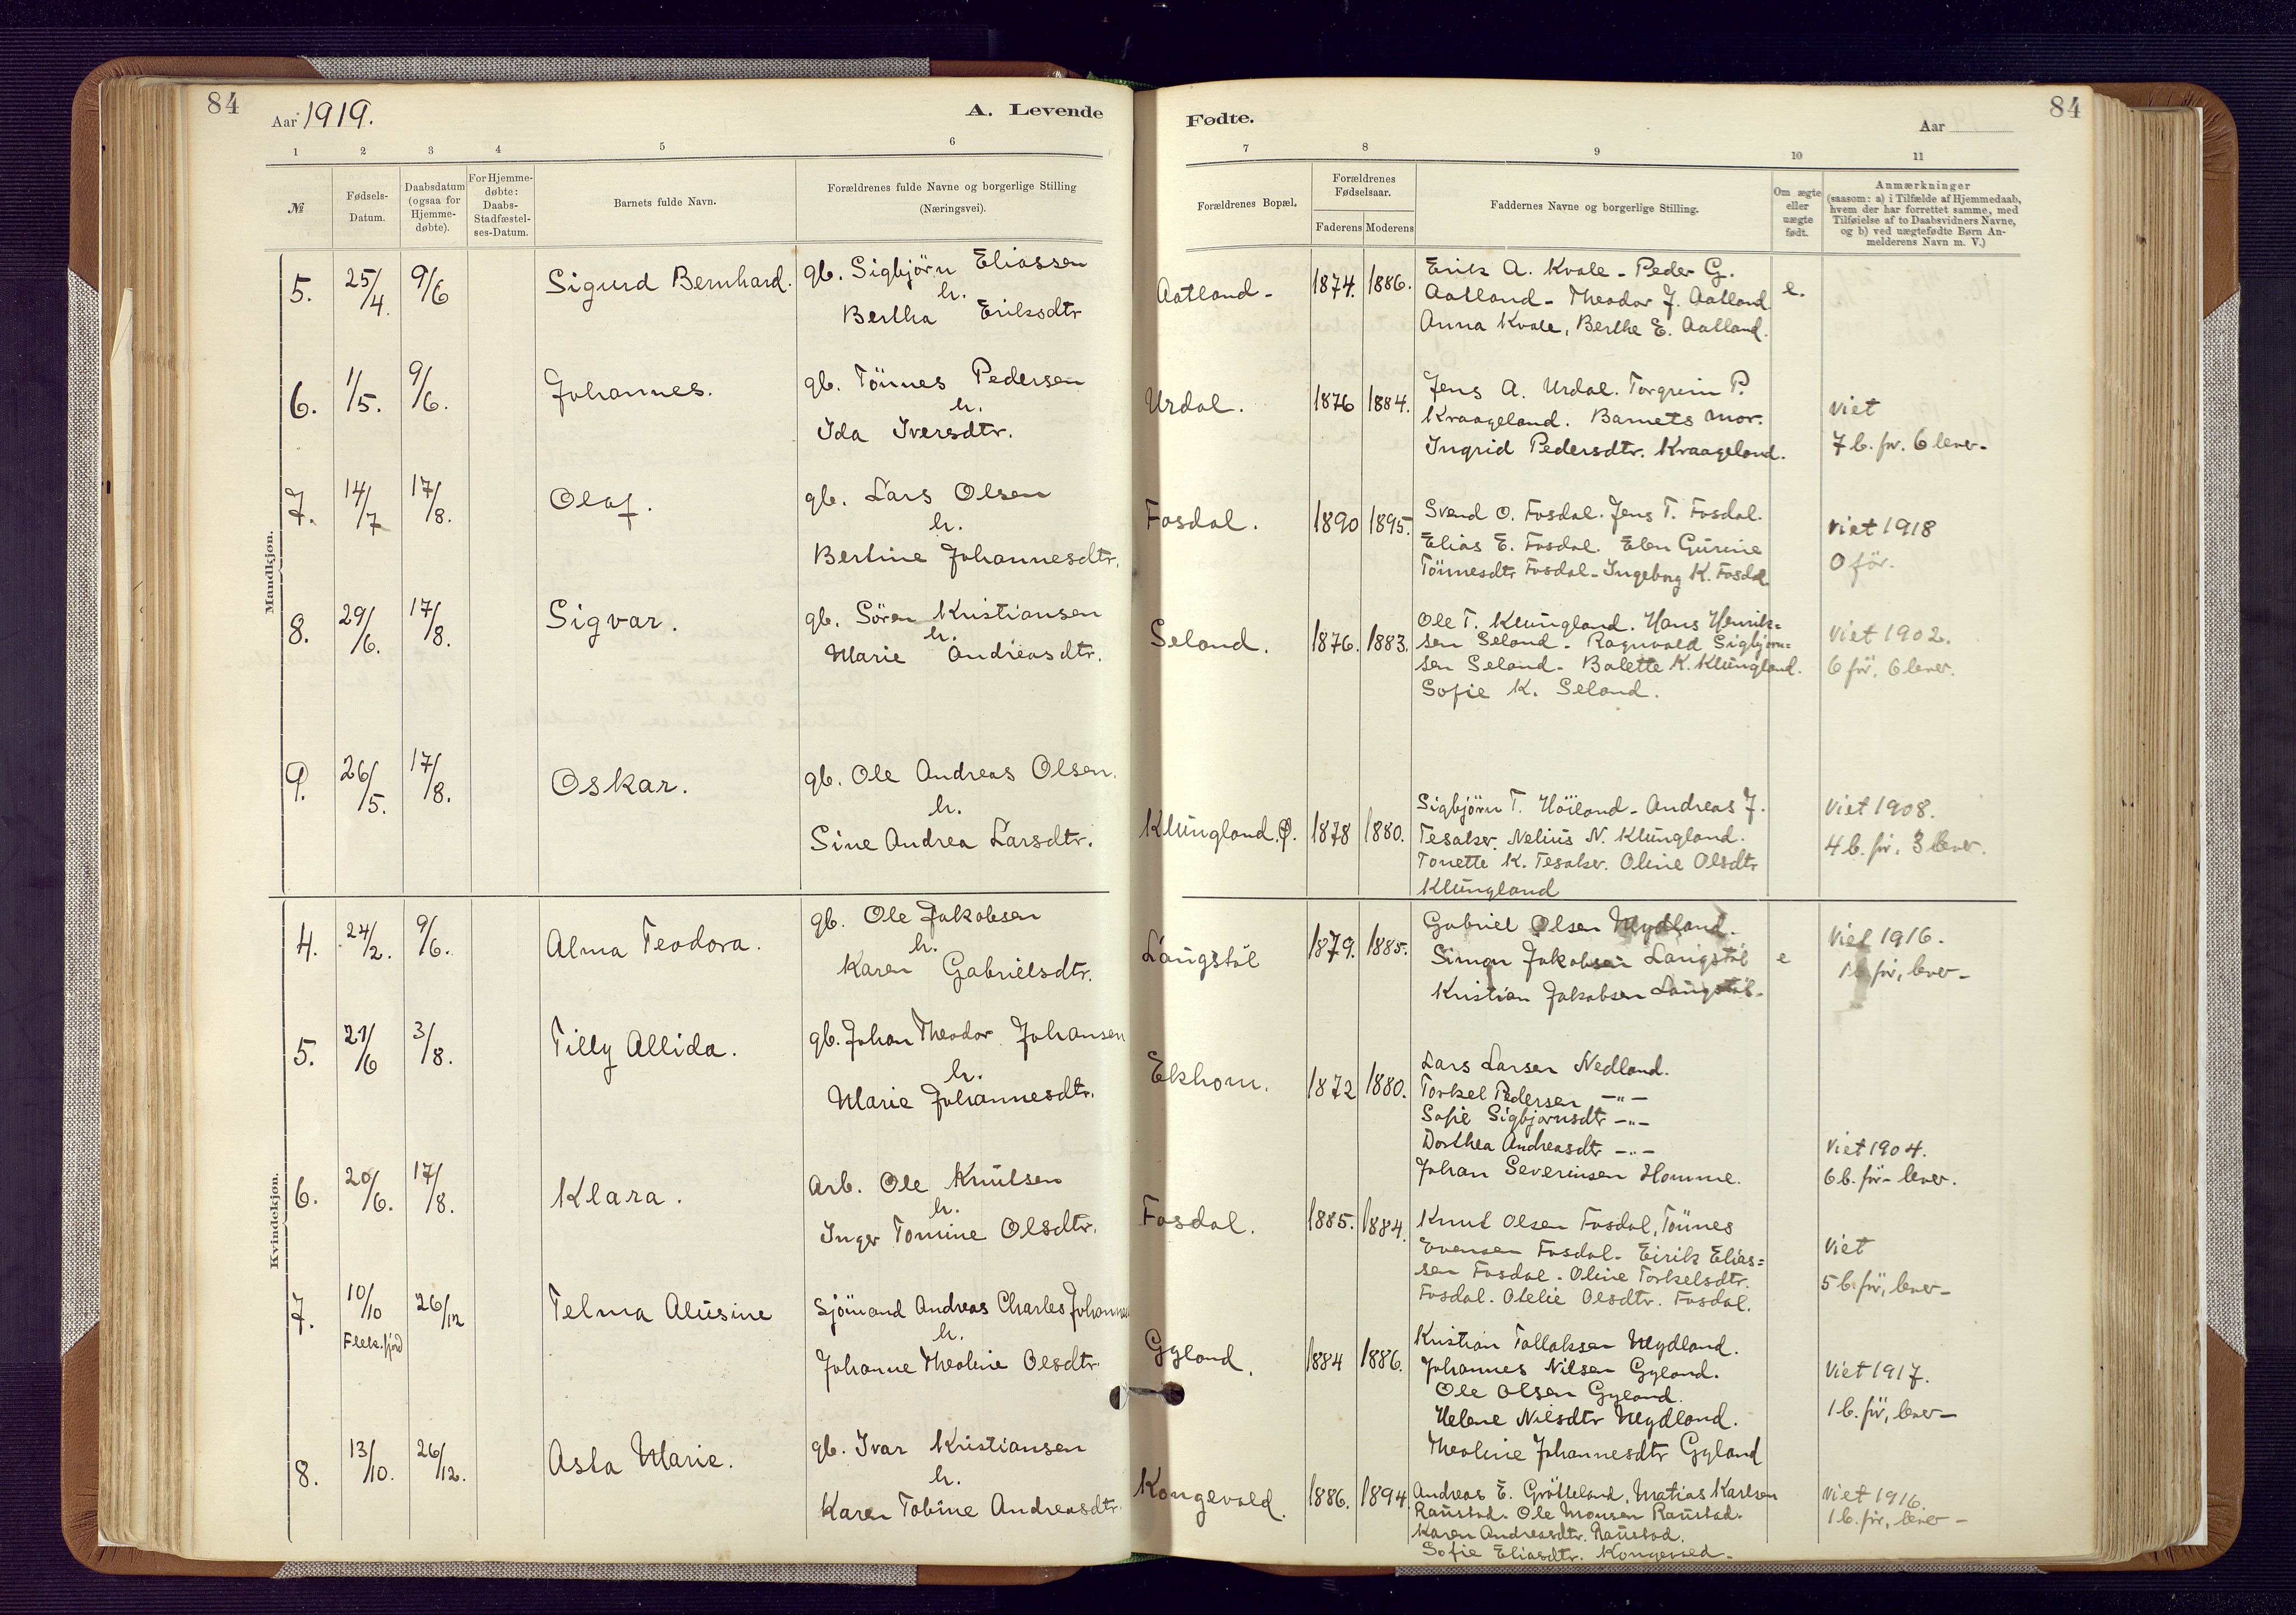 84
Aar 1919.
A. Levende
1 2 3 4 5 6
№
Fødsels-Datum.
Daabsdatum (ogsaa for Hjemme-døbte).
For Hjemme-døbte: Daabs-Stadfæstel-ses-Datum.
Barnets fulde Navn.
Forældrenes fulde Navne og borgerlige Stilling
(Næringsvei).
Mandkjøn.
5. 25/4. 9/6 Sigurd Bernhard. gb. Sigbjörn Eliassen
h.
Bertha Eriksdtr
6. 1/5. 9/6. Johannes. gb. Tönnes Pedersen
h.
Ida Iversdtr.
7. 14/7 17/8. Olaf. gb. Lars Olsen
h.
Bertine Johannesdtr.
8. 29/6. 17/8. Sigvar. gb. Sören Kristiansen
h.
Marie Andreasdtr.
9. 26/5. 17/8. Oskar. gb. Ole Andreas Olsen.
h.
Sine Andrea Larsdtr.
Kvindekjøn.
4. 24/2. 9/6. Alma Teodora. gb. Ole Jakobsen
h.
Karen Gabrielsdtr.
5. 21/6 3/8. Tilly Allida. gb. Johan Theodor Johansen
h.
Marie Johannesdtr.
6. 20/6. 17/8. Klara. Arb. Ole Knutsen
h.
Inger Tomine Olsdtr.
7. 10/10 26/12 Telma Alusine Sjömand Andreas Charles
Flekkefjord
h.
Johanne Theoline Olsdtr.
8. 13/10. 26/12. Asta Marie. gb. Ivar Kristiansen
h.
Karen Tobine Andreasdtr.
Fødte.
Aar
84
7 8 9 10 11
Forældrenes Bopæl.
Forældrenes Fødselsaar.
Faderens Moderens
Faddernes Navne og borgerlige Stilling.
Om ægte eller uægte født.
Anmærkninger
(saasom: a) i Tilfælde af Hjemmedaab,
hvem der har forrettet samme, med
Tilføielse af to Daabsvidners Navne,
og b) ved uægtefødte Børn An-
melderens Navn m. V.)
Aatland - 1874. 1886. Erik A. Kvale - Peder G. e.
Aatland - Theodor J. Aatland
Anna Kvale, Berthe E. Aatland.
Urdal. 1876 1884. Jens A. Urdal. Torgrim P. viet
Kraageland. Barnets mor. 7 b. för. 6 lever-
Ingrid Pedersdtr. Kraageland.
Fosdal. 1890 1895. Svend O. Fosdal. Jens T. Fosdal. viet 1918
Elias E. Fosdal. Elen Gurine 0 för.
Tönnesdtr Fosdal - Ingeborg K. Fosdal
Seland. 1876. 1883. Ole T. Klungland. Hans Henrik= viet 1902.
sen Seland - Ragnvald Sigbjörn= 6 för, 6 lever.
sen Seland - Balette K. Klungland.
Sofie K. Seland.
Klungland. Ø. 1878 1880. Sigbjörn T. Höiland - Andreas J. viet 1908.
Tesaker. Nelius N. Klungland. 4 b. för. 3 lever.
Tonette K. Tesaker. Oline Olsdtr
Klungland
Langstöl 1879. 1885. Gabriel Olsen Mydland. e viet 1916.
Simon Jakobsen Langstöl 1 b. för, lever-
Kristian Jakobsen Langstöl.
Ekhom. 1872 1880. Lars Larsen Nedland.
Torkel Pedersen —"—
Sofie Sigbjornsdtr —"—
Dorthea Andreasdtr —"— viet 1904.
Johan Severinsen Homme. 6 b. för - lever.
Fosdal. 1885. 1884. Knut Olsen Fosdal, Tönnes viet
Evensen Fosdal - Eirik Elias= 5 b. för, lever-
sen Fosdal. Oline Torkelsdtr.
Fosdal. Olelie Olsdtr. Fosdal.
Gyland. 1884 1886. Kristian Tallaksen Mydland.
Johannes Nilsen Gyland. viet 1917.
Ole Olsen Gyland. 1 b. för, lever-
Helene Nilsdtr Mydland.
Theoline Johannesdtr Gyland
Kongevold. 1886. 1894. Andreas E. Grötteland, Matias Karlsen viet 1916.
Raustad. Ole Monsen Raustad. 1 b. för, lever-
Karen Andreasdtr. Raustad.
Sofie Eliasdtr. Kongeved.